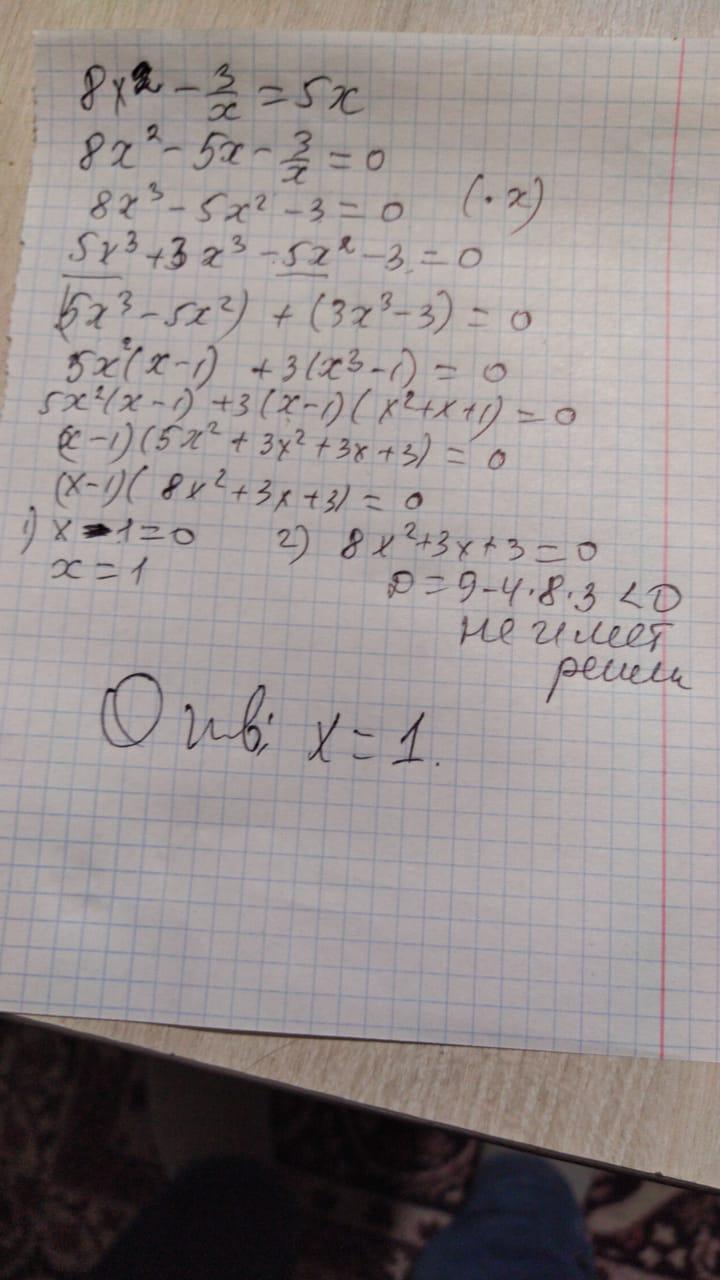 8x² - 3/x = 5x
8x² - 5x - 3/x = 0
8x³ - 5x² - 3 = 0 (· x)
5x³ + 3x³ - 5x² - 3 = 0
(5x³ - 5x²) + (3x³ - 3) = 0
5x²(x - 1) + 3(x³ - 1) = 0
5x²(x - 1) + 3(x - 1)(x² + x + 1) = 0
(x - 1)(5x² + 3x² + 3x + 3) = 0
(x - 1)(8x² + 3x + 3) = 0
1) x - 1 = 0 2) 8x² + 3x + 3 = 0
x = 1 D = 9 - 4·8·3 < 0
не имеет
решен
Отв: x = 1.